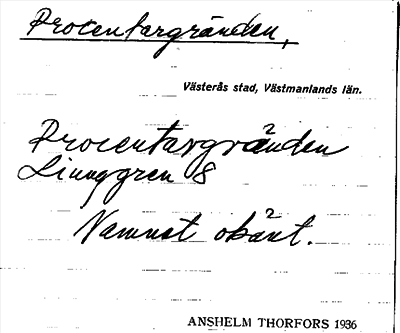 Procentargränden,
Västerås stad, Västmanlands län.
Procentargränden
Linnggren 8
Namnet okänt.
ANSHELM THORFORS 1936